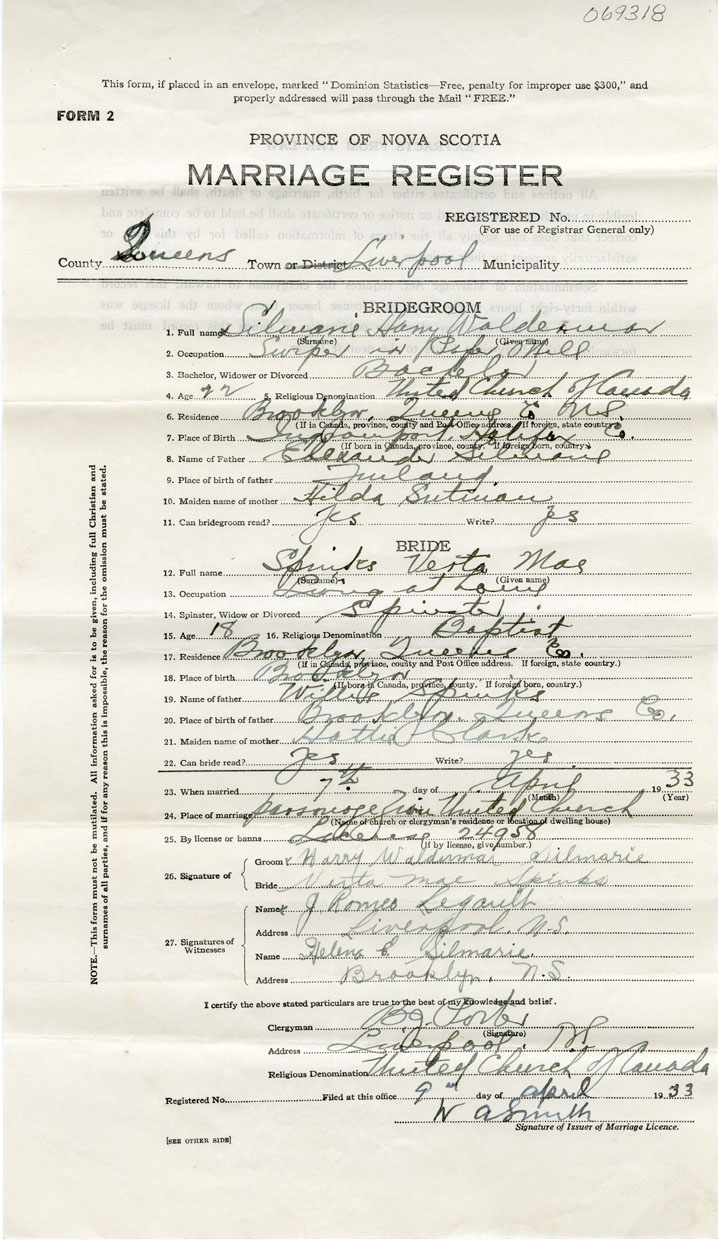 069318
This form, if placed in an envelope, marked "Dominion Statistics—Free, penalty for improper use $300," and
properly addressed will pass through the Mail "FREE."
FORM 2
PROVINCE OF NOVA SCOTIA
MARRIAGE REGISTER
REGISTERED No.
(For use of Registrar General only)
County Queens Town or District Liverpool Municipality
BRIDEGROOM
1. Full name Silmarie Harry Waldermar
(Surname) (Given name)
2. Occupation in Mill
3. Bachelor, Widower or Divorced Bachelor
4. Age 22 5. Religious Denomination United Church of Canada
6. Residence Brooklyn, Queens Co N.S.
(If in Canada, province, county and Post Office address. If foreign, state country.)
7. Place of Birth Halifax Co.
(If born in Canada, province, county. If foreign born, country.)
8. Name of Father Silmarie
9. Place of birth of father Finland
10. Maiden name of mother Hilda
11. Can bridegroom read? Yes Write? Yes
BRIDE
12. Full name Spinks Verta Mae
(Surname) (Given name)
13. Occupation Living at home
14. Spinster, Widow or Divorced Spinster
15. Age 18 16. Religious Denomination Baptist
17. Residence Brooklyn, Queens Co.
(If in Canada, province, county and Post Office address. If foreign, state country.)
18. Place of birth Brooklyn
(If born in Canada, province, county. If foreign born, country.)
19. Name of father Spinks
20. Place of birth of father Brooklyn, Queens Co.
21. Maiden name of mother Hattie
22. Can bride read? Yes Write? Yes
23. When married 7th day of April 1933
(Month) (Year)
24. Place of marriage parsonage United Church
(Name of church or clergyman's residence or location of dwelling house)
25. By license or banns License 24958
(If by license, give number.)
26. Signature of
Groom Harry Waldermar Silmarie
Bride Verta Mae Spinks
27. Signatures of Witnesses
Name J Romeo Legault
Address Liverpool, N.S.
Name Helena E. Silmarie
Address Brooklyn, N.S.
I certify the above stated particulars are true to the best of my knowledge and belief.
Clergyman Porter
(Signature)
Address Liverpool, N.S.
Religious Denomination United Church of Canada
Registered No. Filed at this office 9th day of April 1933
W A Smith
Signature of Issuer of Marriage Licence.
[SEE OTHER SIDE]
NOTE.—This form must not be mutilated. All information asked for is to be given, including full Christian and
surnames of all parties, and if for any reason this is impossible, the reason for the omission must be stated.